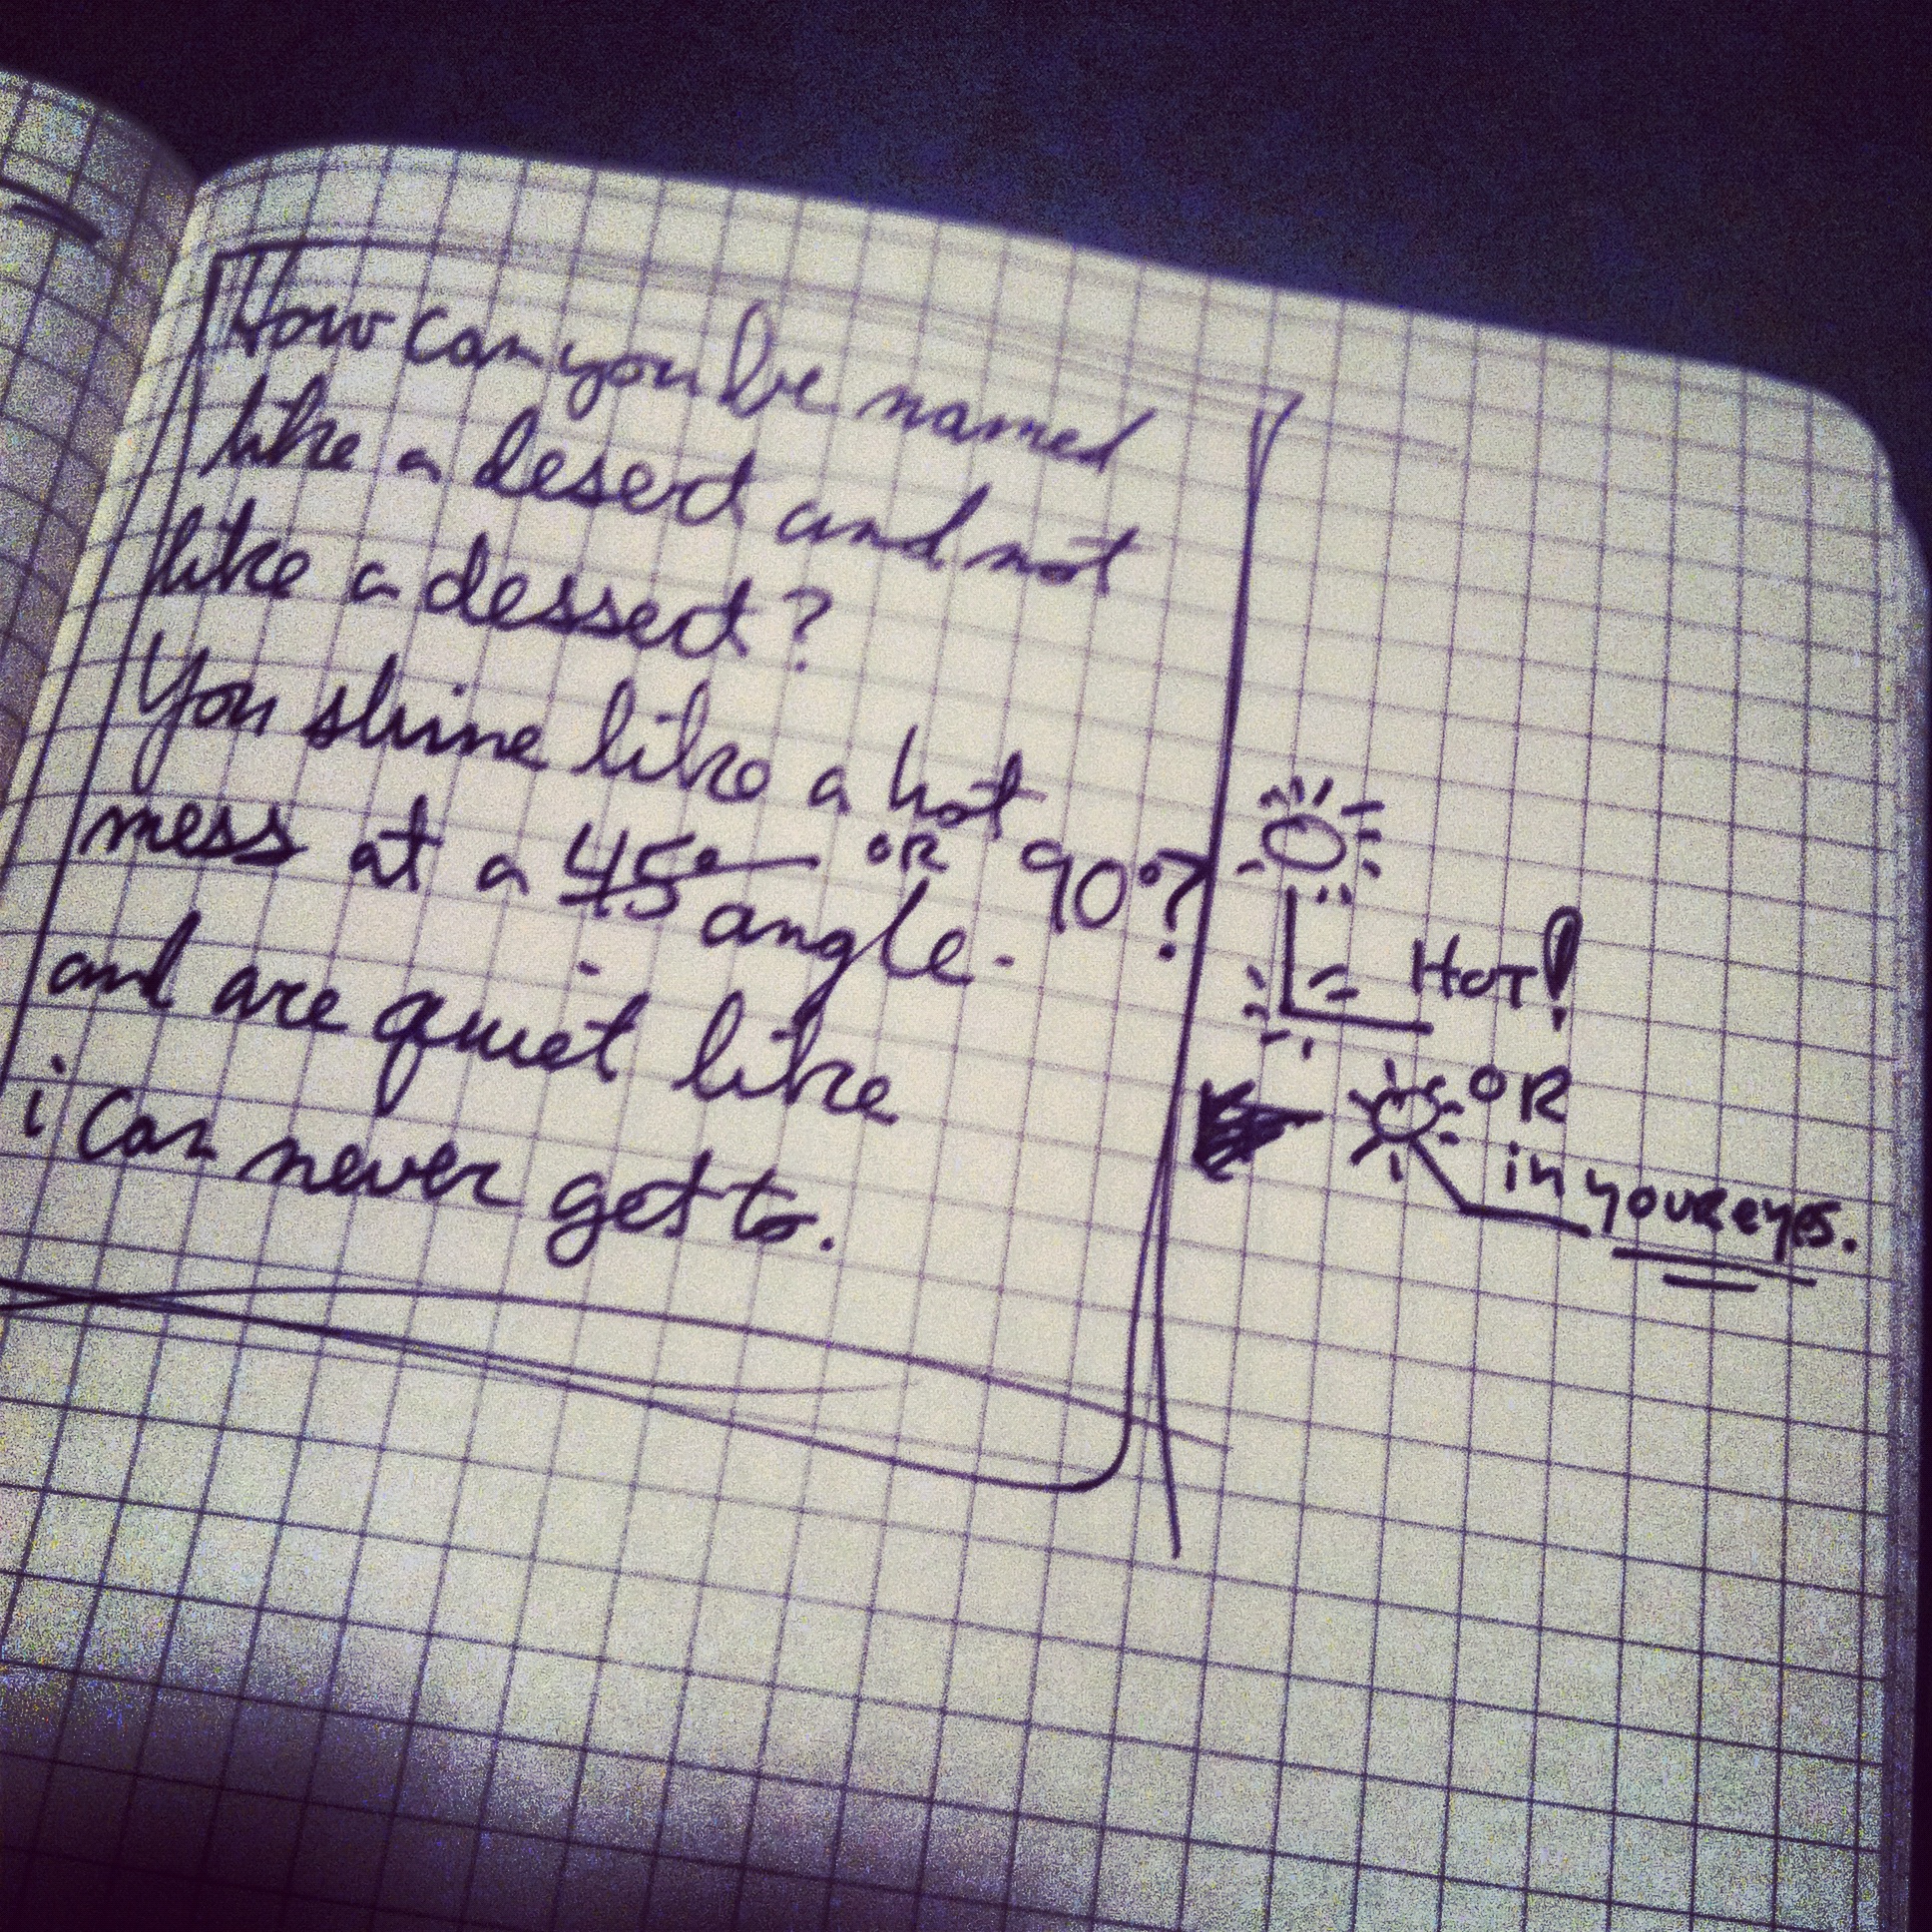 How can you be named
like a desert and not
like a dessert?
You shine like a hot
mess at a 45° OR 90°?
angle.
and are quiet like
i can never get to.
= HOT!
OR
in your eyes.